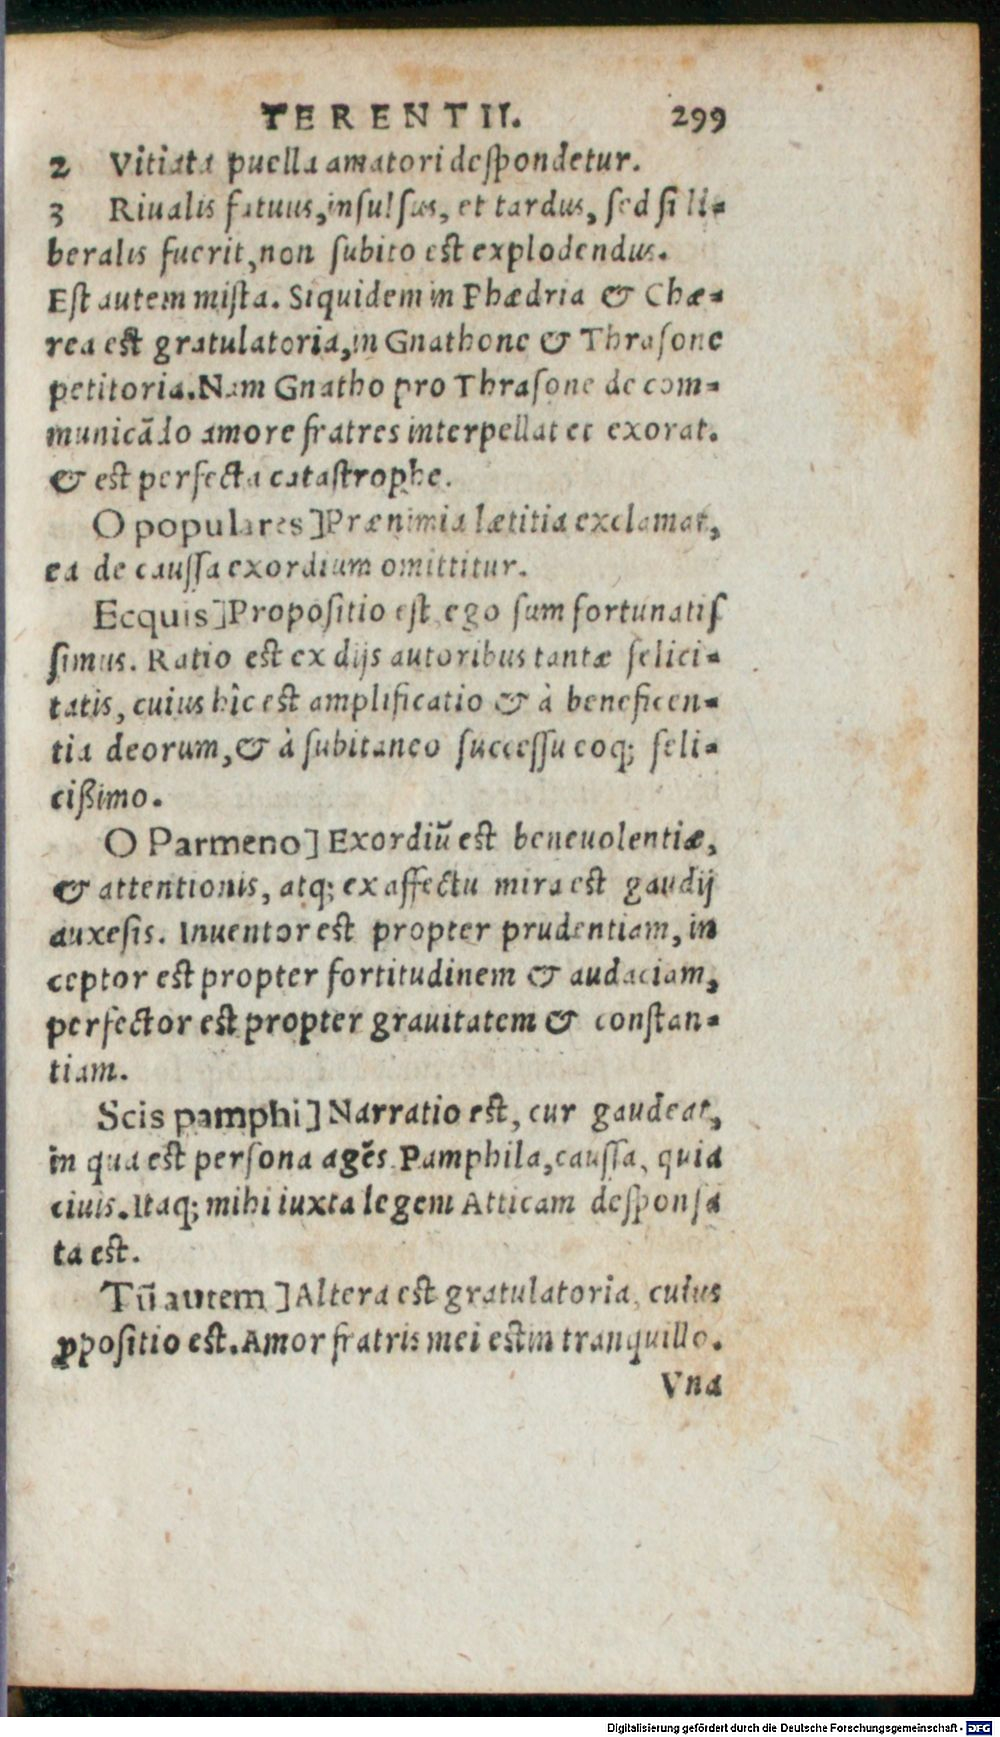 TERENTII. 299
2 Vitiata puella amatori despondetur.
3 Riualis fatuus, insulsus, et tardus, sed si li-
beralis fuerit, non subito est explodendus.
Est autem mista. Siquidem in Phædria & Chæ-
rea est gratulatoria, in Gnathone & Thrasone
petitoria. Nam Gnatho pro Thrasone de com-
municãdo amore fratres interpellat et exorat.
& est perfecta catastrophe.
O populares] Præ nimia lætitia exclamat,
ea de caussa exordium omittitur.
Ecquis] Propositio est, ego sum fortunatis
simus. Ratio est ex dijs autoribus tantæ felici-
tatis, cuius hîc est amplificatio & à beneficen-
tia deorum, & à subitaneo successu eoq; feli-
cißimo.
O Parmeno] Exordiũ est beneuolentiæ,
& attentionis, atq; ex affectu mira est gaudij
auxesis. Inuentor est propter prudentiam, in
ceptor est propter fortitudinem & audaciam,
perfector est propter grauitatem & constan-
tiam.
Scis pamphi] Narratio est, cur gaudeat,
in qua est persona agẽs Pamphila, caussa, quia
ciuis. Itaq; mihi iuxta legem Atticam desponsa
ta est.
Tũ autem] Altera est gratulatoria, cuius
ꝓpositio est. Amor fratris mei est in tranquillo.
Vna
Digitalisierung gefördert durch die Deutsche Forschungsgemeinschaft - DFG